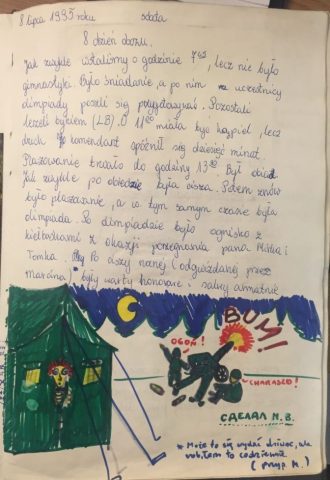 8 lipca 1995 roku sobota
8 dzień obozu.
Jak zwykle wstaliśmy o godzinie 7⁴⁵, lecz nie było
gimnastyki. Było śniadanie, a po nim na uczestnicy
olimpiady poszli się przygotowywać. Pozostali
leżeli bykiem (LB). O 11⁰⁰ miała być kąpiel, lecz
druh komendant spóźnił się dziesięć minut.
Plażowanie trwało do godziny 13⁰⁰. Był obiad.
Jak zwykle po obiedzie była cisza. Potem znów
było plażowanie, a w tym samym czasie była
olimpiada. Po olimpiadzie było ognisko z
kiełbaskami z okazji pożegnania pana Mirka i
Tomka. Po ciszy nocnej (odgwizdanej przez
Marcina) były warty honorowe i salwy armatnie.
BUM!
OGOŃ!
CHARASZO!
СДЕЛАЛ N.B.
* Może to się wydać dziwne, ale
robiłem to codziennie
(przyp. M.)